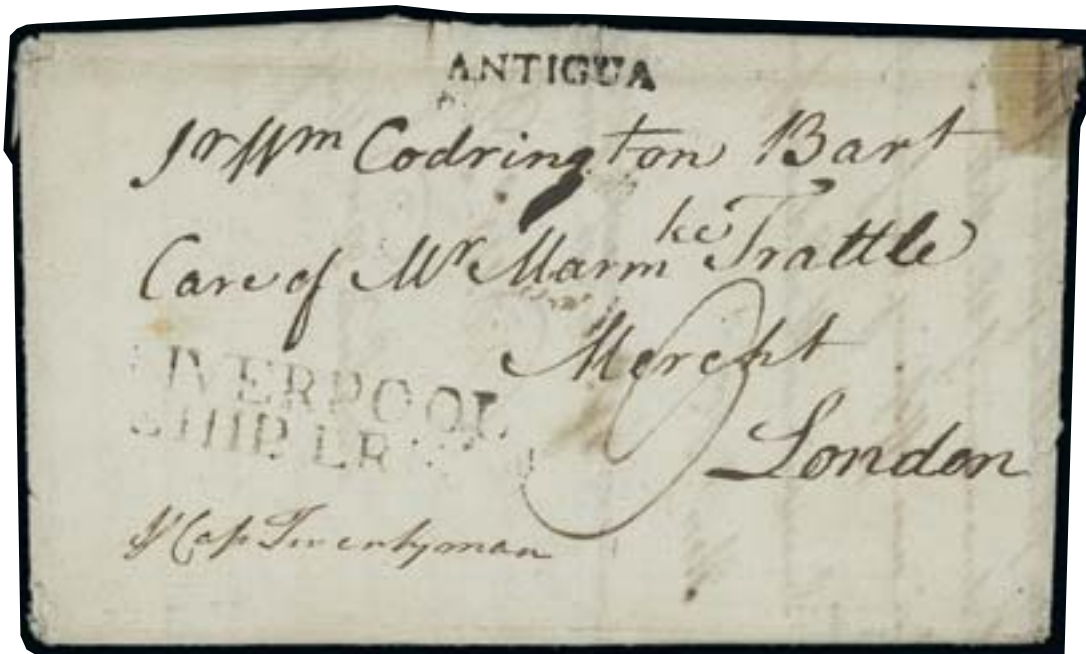 ANTIGUA
Sr Wm Codrington Bart
Care of Mr Marmke Trattle
Mercht
London
LIVERPOOL
SHIP LE
pr Cap Twentyman